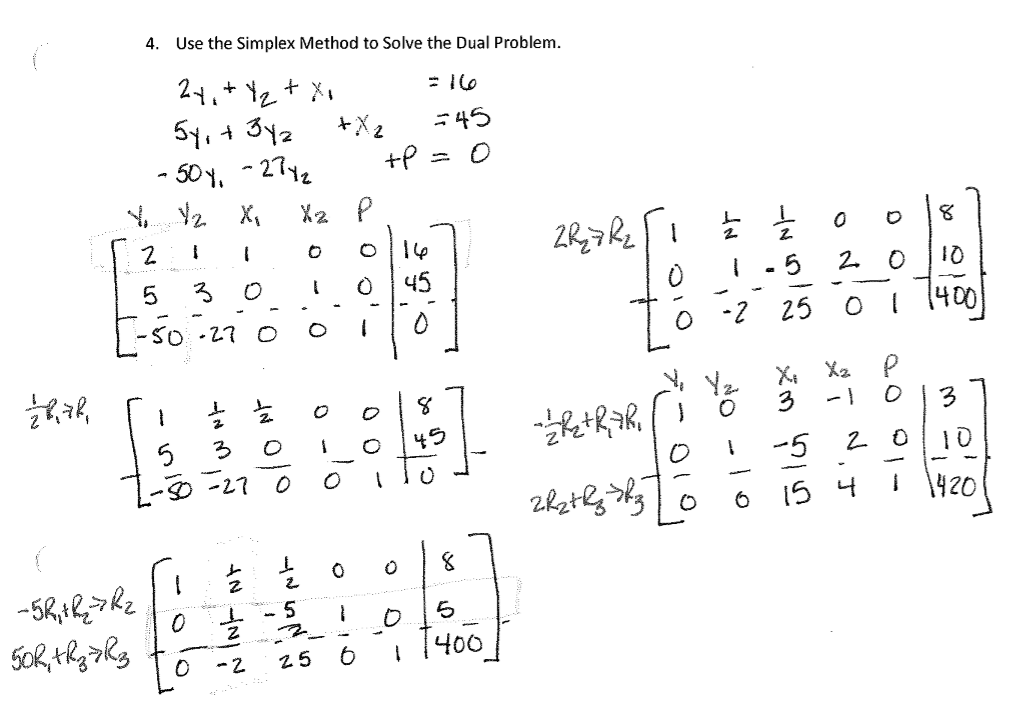 4. Use the Simplex Method to Solve the Dual Problem.
2y₁ + y₂ + x₁ = 16
5y₁ + 3y₂ + x₂ = 45
-50y₁ - 27y₂ + P = 0
y₁ y₂ x₁ x₂ P
2 1 1 0 0 | 16
5 3 0 1 0 | 45
-50 -27 0 0 1 | 0
½R₁→R₁
1 ½ ½ 0 0 | 8
5 3 0 1 0 | 45
-50 -27 0 0 1 | 0
-5R₁+R₂→R₂
50R₁+R₃→R₃
1 ½ ½ 0 0 | 8
0 ½ -5/2 1 0 | 5
0 -2 25 0 1 | 400
2R₂→R₂
1 ½ ½ 0 0 | 8
0 1 -5 2 0 | 10
0 -2 25 0 1 | 400
y₁ y₂ x₁ x₂ P
-½R₂+R₁→R₁
2R₂+R₃→R₃
1 0 3 -1 0 | 3
0 1 -5 2 0 | 10
0 0 15 4 1 | 420